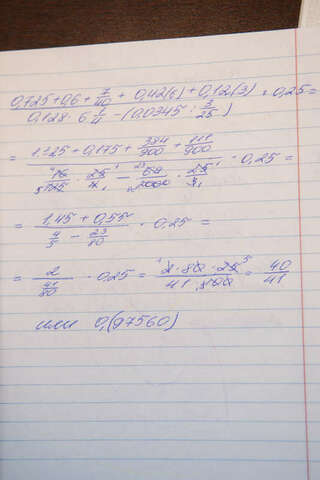 0,725+0,6+ 7/40 + 0,42(6) + 0,12(3) · 0,25 =
0,128 · 6 1/4 − (0,0345 : 3/25)
= 1.325+0,175 + 384/900 + 111/900 · 0,25 =
16/125 · 25/4 − 69/2000 · 25/3
= 1.45 + 0,55 · 0.25 =
4/5 − 23/80
= 2 / 41/80 · 0.25 = 2·80·25/41·100 = 40/41
или 0,(97560)